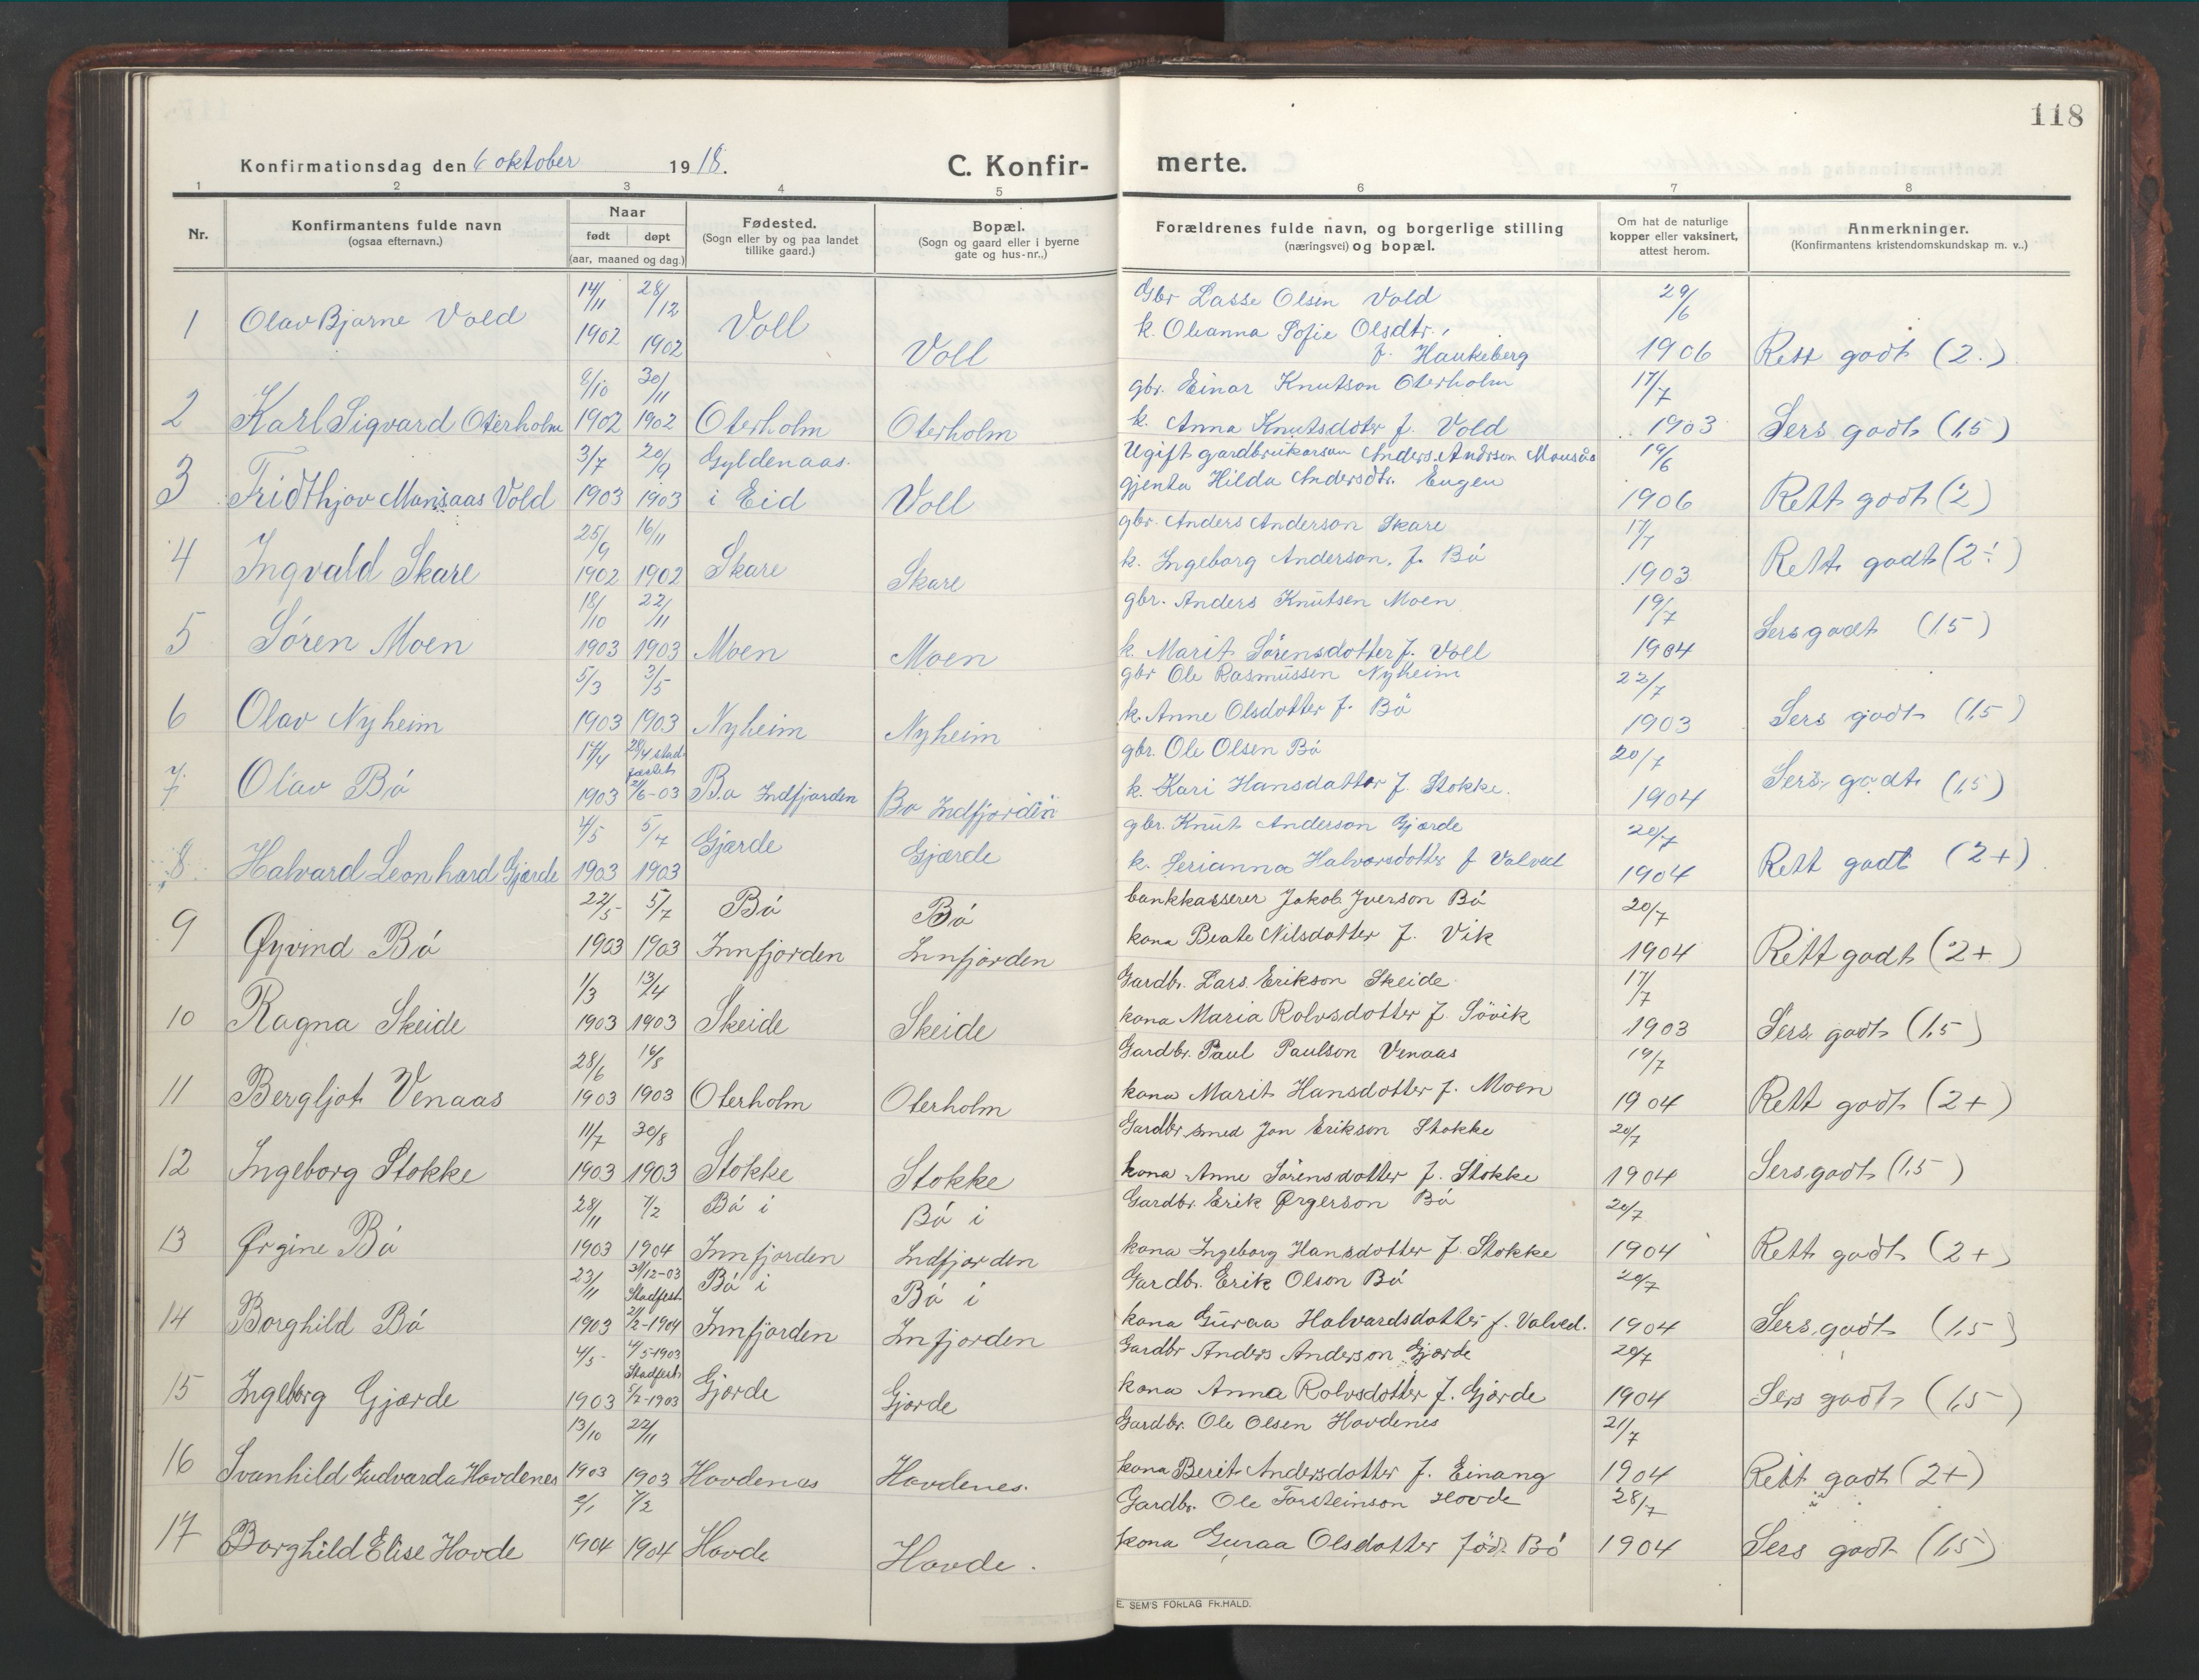 118
Konfirmationsdag den 6 oktober 1918.
C. Konfirmerte.
1 2 3 4 5 6 7 8
Nr.
Konfirmantens fulde navn
(ogsaa efternavn.)
Naar
født døpt
(aar, maaned og dag.)
Fødested.
(Sogn eller by og paa landet
tillike gaard.)
Bopæl.
(Sogn og gaard eller i byerne
gate og hus-nr.,)
Forældrenes fulde navn, og borgerlige stilling
(næringsvei) og bopæl.
Om hat de naturlige
kopper eller vaksinert,
attest herom.
Anmerkninger.
(Konfirmantens kristendomskundskap m. v..)
14/11 28/12 Gbr Lasse Olsen Vold 29/6
1 Olav Bjarne Vold 1902 1902 Voll Voll k. Oleanna Sofie Olsdtr.,
f. Haukeberg 1906 Rett godt (2.)
8/10 30/11 gbr. Einar Knutson Oterholm 17/7
2 Karl Sigvard Oterholm 1902 1902 Oterholm Oterholm k. Anna Knutsdotr f. Vold 1903 Sers godt (1,5)
3/7 20/9 Gyldenaas Ugift gardbrukarson Anders Andrson Monsås 19/6
3 Fridthjov Monsaas Vold 1903 1903 i Eid Voll gjenta Hilda Andersdtr. Eugen 1906 Rett godt (2)
25/9 16/11 gbr. Anders Anderson Skare 17/7
4 Ingvald Skare 1902 1902 Skare Skare k. Ingeborg Anderson, f. Bö 1903 Rett godt (2÷)
18/10 22/11 gbr. Anders Knutsen Moen 19/7
5 Sören Moen 1903 1903 Moen Moen k. Marit Sörensdotter f. Voll 1904 Sers godt (1,5)
5/3 3/5 gbr Ole Rasmussen Nyheim 22/7
6 Olav Nyheim 1903 1903 Nyheim Nyheim k. Anne Olsdotter f. Bö 1903 Sers godt (1,5)
17/4 28/4 stadfæstet gbr. Ole Olsen Bö 20/7
7 Olav Bö 1903 2/6-03 Bø Indfjorden Bø Indfjorden k. Kari Hansdatter f. Stokke. 1904 Sers. godt (1,5)
4/5 5/7 gbr. Knut Anderson Gjærde 20/7
8 Halvard Leonhard Gjærde 1903 1903 Gjærde Gjærde k. Serianna Halvorsdotter f Valved 1904 Rett godt (2+)
22/5 5/7 Bö Bö bankkasserer Jakob Iverson Bö 20/7
9 Øyvind Bö 1903 1903 Innfjorden Innfjorden kona Beate Nilsdotter f. Vik 1904 Rett godt (2+)
1/3 13/4 Gardbr. Lars Erikson Skeide 17/7
10 Ragna Skeide 1903 1903 Skeide Skeide kona Maria Rolvsdotter f. Sövik 1903 Sers godt (1,5)
28/6 16/8 Gardbr. Paul Paulson Venaas 19/7
11 Bergljot Venaas 1903 1903 Oterholm Oterholm kona Marit Hansdotter f. Moen 1904 Rett godt (2+)
11/7 30/8 Gardbr. smed Jon Erikson Stokke 20/7
12 Ingeborg Stokke 1903 1903 Stokke Stokke kona Anne Sörensdotter f. Stokke 1904 Sers godt (1,5)
28/11 7/2 Bö i Bö i Gardbr. Erik Ørgerson Bö 20/7
13 Ørgine Bö 1903 1904 Innfjorden Indfjorden kona Ingeborg Hansdotter f. Stokke 1904 Rett godt (2+)
23/11 31/12-03 Stadfest Bö i Bö i Gardbr. Erik Olson Bö 20/7
14 Borghild Bö 1903 21/2-1904 Innfjorden Innfjorden kona Guraa Halvardsdotter f. Valved. 1904 Sers godt (1,5)
4/5 4/5-1903 Stadfest Gardbr Anders Anderson Gjærde 20/7
15 Ingeborg Gjærde 1903 5/7-1903 Gjærde Gjærde kona Anna Rolvsdotter f. Gjærde 1904 Sers godt (1,5)
13/10 22/11 Gardbr. Ole Olsen Hovdenes 21/7
16 Svanhild Gudvarda Hovdenes 1903 1903 Hovdenes Hovdenes. kona Berit Andersdotter f. Einang 1904 Rett godt (2+)
2/1 7/2 Gardbr. Ole Torsteinson Hovde 28/7
17 Borghild Elise Hovde 1904 1904 Hovde Hovde. kona Guraa Olsdotter föd. Bö 1904 Sers godt (1,5)
E. SEM'S FORLAG FR.HALD.